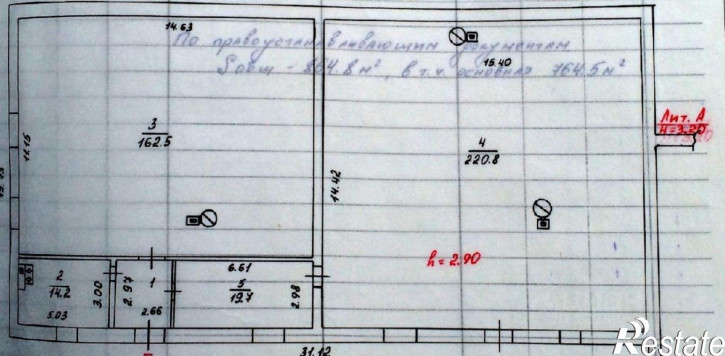 14.63
По правоустанавливающим документам
Sобщ - 864.8 м², в т.ч. основная 764.5 м²
15.40
Лит. А
H=3.20
11.15
3
162.5
4
220.8
14.42
h = 2.90
2
14.2
3.00
5.03
1
2.97
2.66
6.61
5
19.7
2.98
31.12
Restate